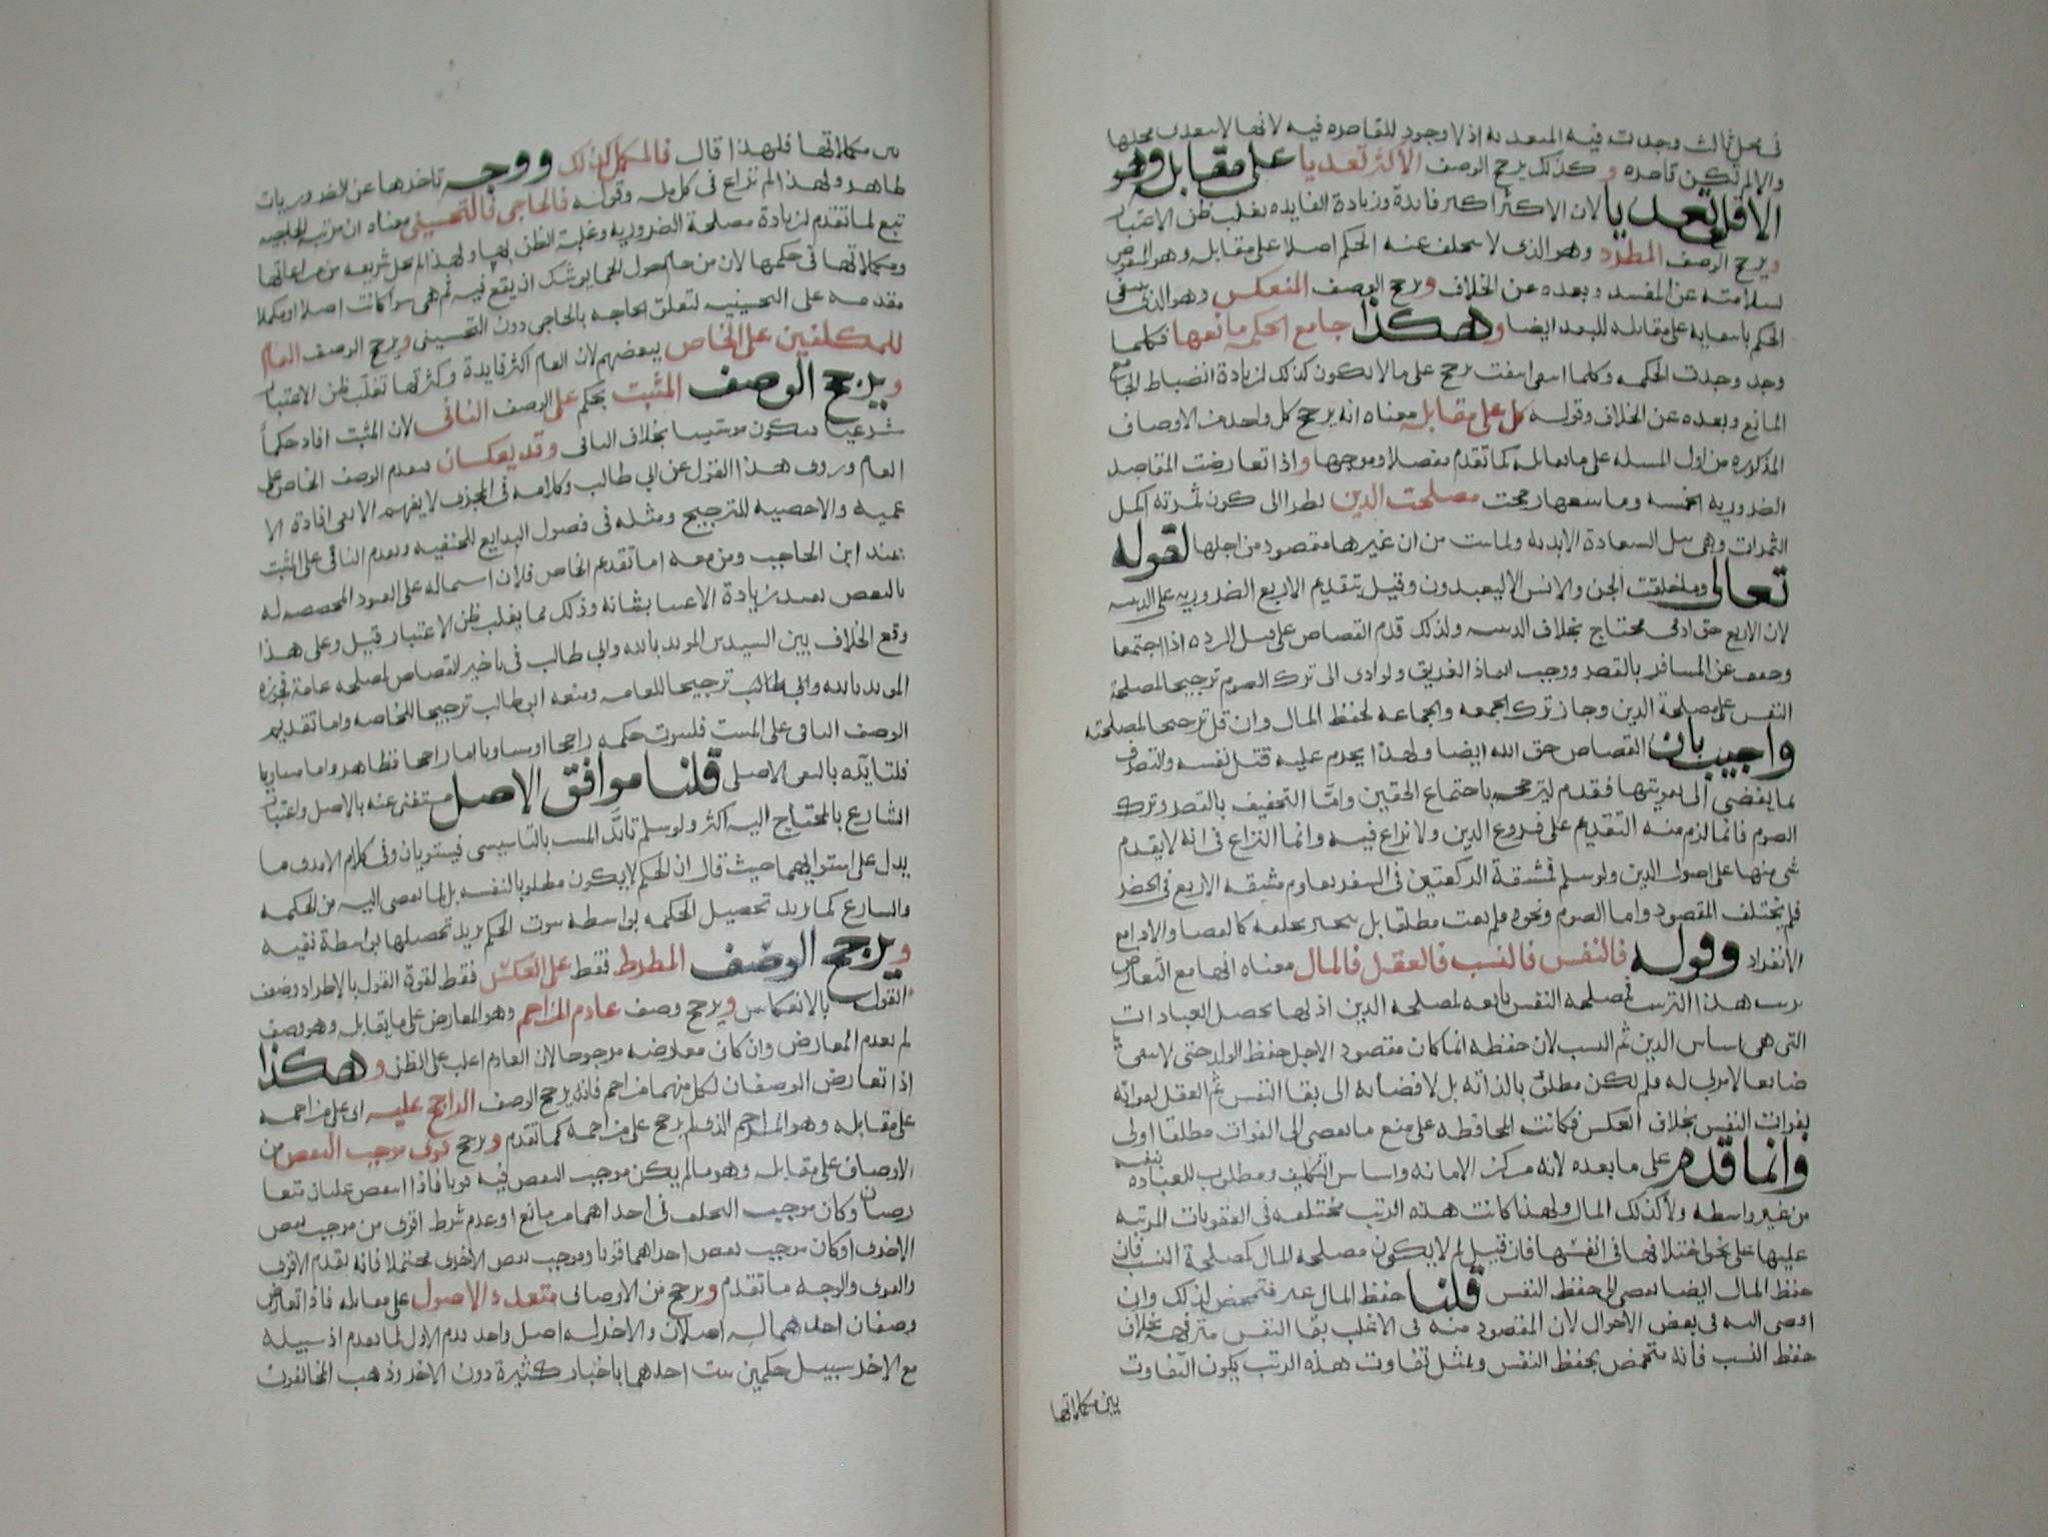 في محل ثالث وجدت فيه المتعدية اذ لا وجود للقاصره فيه لانها لا تتعدى محلها
والا لم تكن قاصره وكذلك يرجح الوصف الاكثر تعديا على مقابل وهو
الاقل تعديا لان الاكثر اكثر فايدة وزيادة الفايده تغلب ظن الاعتبار
ويرجح الوصف المطرد وهو الذى لا يتخلف عنه الحكم اصلا على مقابله وهو المنقوض
لسلامته عن المفسد وبعده عن الخلاف ويرجح الوصف المنعكس وهو الذى ينتفى
الحكم بانتفايه على مقابله للبعد ايضا وهكذا جامع الحكمه مانعها فكلما
وجد وجدت الحكمه وكلما انتفى انتفت يرجح على ما لا يكون كذلك لزيادة انضباط الجامع
المانع وبعده عن الخلاف وقوله كل على مقابله معناه انه يرجح كل واحد من الاوصاف
المذكوره من اول المسله على ما يقابله كما تقدم مفصلا وموجها واذا تعارضت المقاصد
الضروريه الخمسه وما معها رجحت مصلحة الدين نظرا الى كون ثمرته اكمل
الثمرات وهى نيل السعادة الابديه ولما ثبت من ان غيرها مقصود من اجلها لقوله
تعالى وما خلقت الجن والانس الا ليعبدون وقيل بتقديم الاربع الضروريه على الدينيه
لان الاربع حق ادمى محتاج بخلاف الدينيه ولذلك قدم القصاص على قتل الرده اذا اجتمعا
وخفف عن المسافر بالقصر ووجب انقاذ الغريق ولو ادى الى ترك الصوم ترجيحا لمصلحة
النفس على مصلحة الدين وجاز ترك الجمعه والجماعه لحفظ المال وان قل ترجيحا لمصلحته
واجيب بان القصاص حق الله ايضا ولهذا يحرم عليه قتل نفسه والتصرف
بما يفضى الى تفويتها فقدم لترجحه باجتماع الحقين واما التخفيف بالقصر وترك
الصوم فانما لزم منه التقديم على فروع الدين ولا نزاع فيه وانما النزاع فى انه لا يقدم
شى منها على اصول الدين ولو سلم فمشقة الركعتين فى السفر تقاوم مشقه الاربع فى الحضر
فلم يختلف المقصود واما الصوم ونحوه فلم يفت مطلقا بل ينجبر بخلفه كالقضا والاداء مع
الانفراد وقوله فالنفس فالنسب فالعقل فالمال معناه انها مع التعارض
ترتب هذا الترتيب فمصلحه النفس تابعه لمصلحه الدين اذ بها تحصل العبادات
التى هى اساس الدين ثم النسب لان حفظه انما كان مقصود الاجل حفظ الولد حتى لا يبقى
ضايعا لا مربى له فلم يكن مطلوبا لذاته بل لافضائه الى بقا النفس ثم العقل لفواته
بفوات النفس بخلاف العكس فكانت المحافظه على منع ما يفضى الى الفوات مطلقا اولى
وانما قدم على ما بعده لانه مركز الامانه واساس التكليف ومطلوب للعباده بنفسه
من غير واسطه ولا كذلك المال ولهذا كانت هذه الرتب مختلفه فى العقوبات المرتبه
عليها على نحو اختلافها فى انفسها فان قيل لم لا يكون مصلحه المال كمصلحة النسب فان
حفظ المال ايضا يفضى الى حفظ النفس قلنا حفظ المال غير متمحض لذلك وان
افضى اليه فى بعض الاحوال لان المقصود منه فى الاغلب بقا النفس مترفهه بخلاف
حفظ النسب فانه متمحض لحفظ النفس وبمثل تفاوت هذه الرتب يكون التفاوت
بين مكملاتها
بين مكملاتها فلهذا قال فالمكمل لذلك ووجه تاخرها عن الضروريات
ظاهر ولهذا لم نزاع فى كل مله وقوله فالحاجى فالتحسينى معناه ان مرتبه الحاجيه
تبع لما تقدم لزيادة مصلحة الضروريه وغلبة الظن بها ولهذا لم تخل شريعه من مراعاتها
ومكملاتها فى حكمها لان من حام حول الحمى يوشك ان يقع فيه ثم هى سوا كانت اصلا او مكملا
مقدمه على التحسينيه لتعلق الحاجه بالحاجى دون التحسينى ويرجح الوصف العام
للمكلفين على الخاص ببعضهم لان العام اكثر فايدة وكثرتها تغلب ظن الاعتبار
ويرجح الوصف المثبت بحكم على الوصف النافى لان المثبت افاد حكما
شرعيا فيكون موسسا بخلاف النافى وقد يعكسان فيقدم الوصف الخاص على
العام وروى هذا القول عن ابى طالب وكلامه فى المجزى لا يفهم الا نفى افادة الا
عميه والاخصيه للترجيح ومثله فى فصول البدايع للحنفيه ويقدم النافى على المثبت
عند ابن الحاجب ومن معه اما تقدم الخاص فلان اشتماله على القيود المخصصه له
بالبعض يفيد زيادة الاعتنا بشانه وذلك مما يغلب ظن الاعتبار قيل وعلى هذا
وقع الخلاف بين السيدين المويد بالله وابى طالب فى تاخير القصاص لمصلحه عامة فجوزه
المويد بالله وابى طالب ترجيحا للعامه ومنعه ابو طالب ترجيحا للخاصه واما تقديم
الوصف النافى على المثبت فلثبوت حكمه راجحا او مساويا اما راجحا فظاهر واما مساويا
فلتايده بالنفى الاصلى قلنا موافق الاصل مستغنى عنه بالاصل واعتبار
الشارع بالمحتاج اليه اكثر ولو سلم تايد المثبت بالتاسيس فيستويان وفى كلام الامدى ما
يدل على استوايهما حيث قال ان الحكم لا يكون مطلوبا لنفسه بل لما يفضى اليه من الحكمه
والشارع كما يريد تحصيل الحكمه بواسطه ثبوت الحكم يريد تحصيلها بواسطة نفيه
ويرجح الوصف المطرد فقط على العكس فقط لقوة القول بالاطراد وضعف
القول بالانعكاس ويرجح وصف عادم المزاحم وهو المعارض على ما يقابله وهو وصف
لم يعدم المعارض وان كان معارضه مرجوحا لان العادم اغلب على الظن وهكذا
اذا تعارض الوصفان لكل منهما مزاحم فانه يرجح الوصف الراجح عليه اى على مزاحمه
على مقابله وهو المزاحم الذى لم يرجح على مزاحمة كما تقدم ويرجح قوى موجب النقض من
الاوصاف على مقابله وهو ما لم يكن موجب النقض فيه قويا فاذا انتقض علتان متعا
رضتان وكان موجب التخلف فى احداهما من مانع او عدم شرط اقوى من موجب نقض
الاخرى او كان موجب نقض احداهما قويا وموجب نقض الاخرى محتملا فانه تقدم الاقوى
والقوى والوجه ما تقدم ويرجح من الاوصاف متعدد الاصول على مقابله فاذا تعارض
وصفان احدهما له اصلان والاخر له اصل واحد قدم الاول لما تقدم اذ سبيله
مع الاخر سبيل حكمين ثبت احدهما باخبار كثيرة دون الاخر وذهب المخالفون